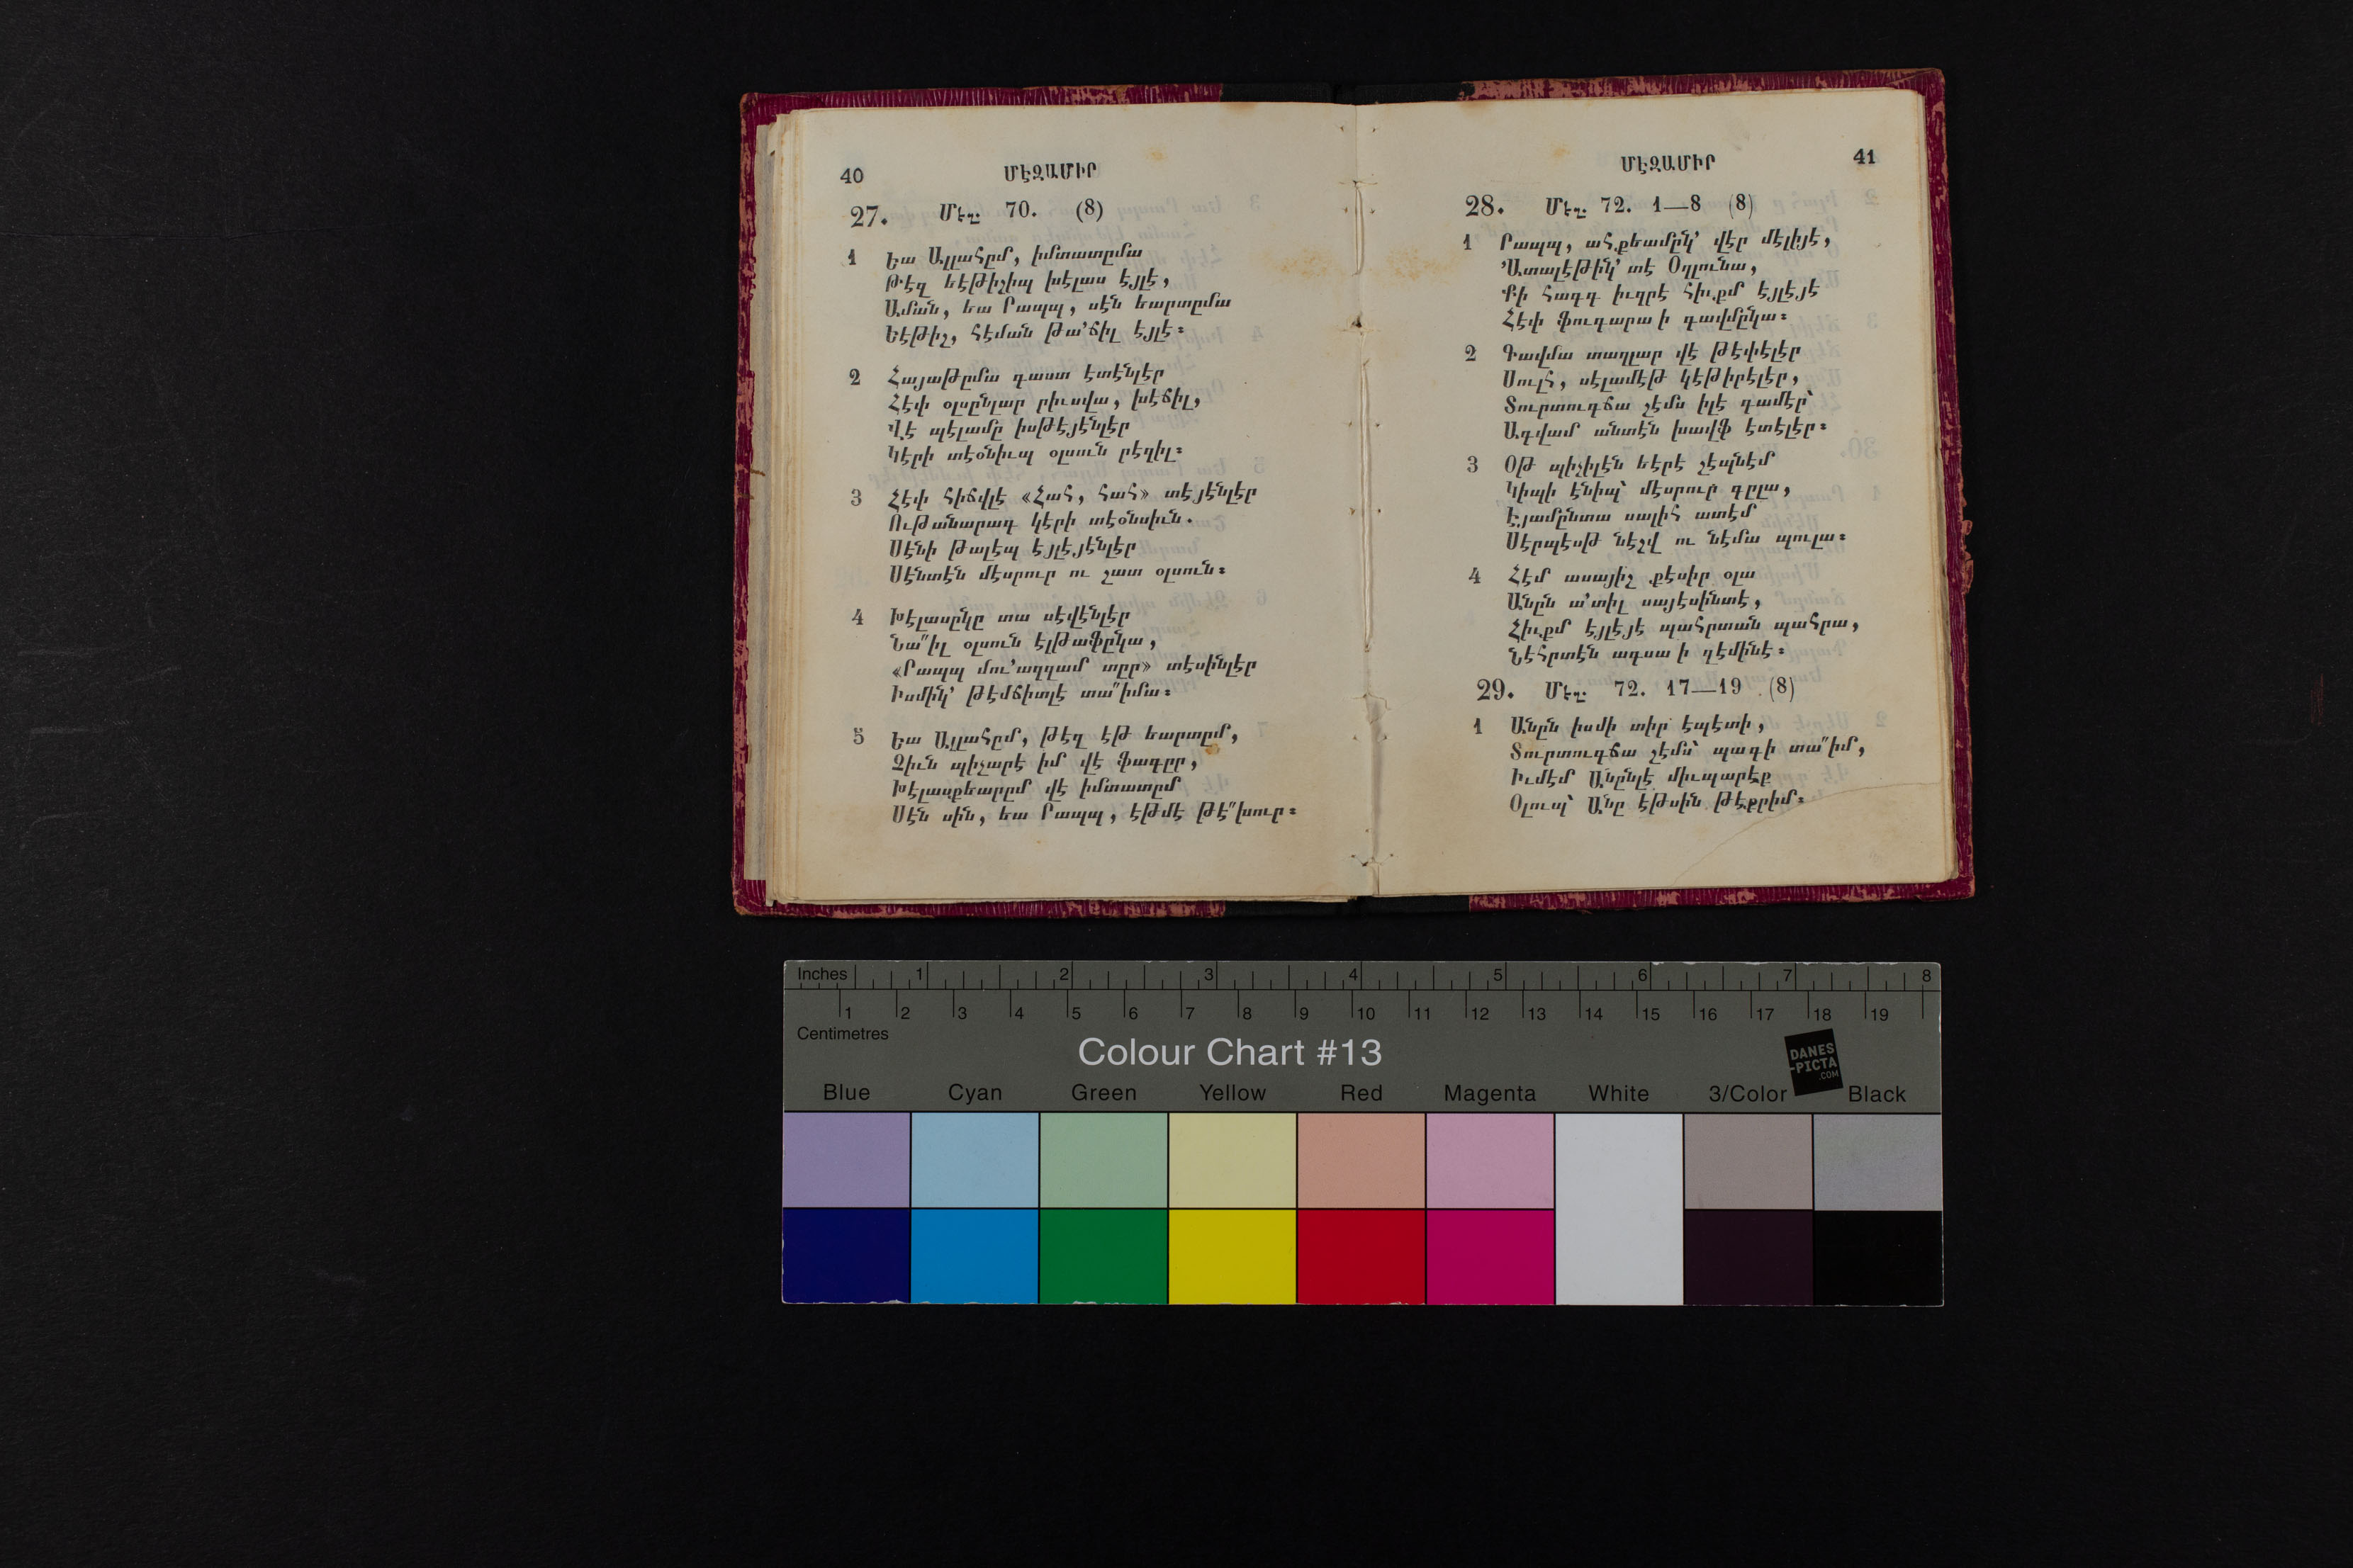 40 ՄԷԶԱՄԻՐ
27. Մէզ. 70. (8)
1 Եա Ալլահըմ, իմտատըմա
Թէզ եէթիշիպ խէլաս էյլէ,
Աման, եա Րապպ, սէն եարտըմա
Եէթիշ, հէման թա՛ճիլ էյլէ։
2 Հայաթըմա գաստ էտէնլէր
Հէփ օլսընլար րիւսվա, խէճիլ,
Վէ պէլամը իսթէյէնլէր
Կէրի տէօնիւպ օլսուն րէզիլ։
3 Հէփ հիճվլէ «Հահ, հահ» տէյէնլէր
Ութանարագ կէրի տէօնսիւն.
Սէնի թալէպ էյլէյէնլէր
Սէնտէն մէսրուր ու շատ օլսուն։
4 Խէլասընը տա սէվէնլէր
Նա՞իլ օլսուն էլթաֆընա,
«Րապպ մու՛ազզամ տըր» տէսինլէր
Իսմին՛ թէմճիտլէ տա՞իմա։
5 Եա Ալլահըմ, թէզ էթ եարտըմ,
Զիւն պիչարէ իմ վէ ֆագըր,
Խէլասքեարըմ վէ իմտատըմ
Սէն սին, եա Րապպ, էթմէ թէ՞խուր։
ՄԷԶԱՄԻՐ 41
28. Մէզ. 72. 1—8 (8)
1 Րապպ, ահքեամըն՛ վէր մէլիյէ,
՛Ատալէթին՛ տէ Օղլունա,
Քի հագգ իւզրէ հիւքմ էյլէյէ
Հէփ ֆուգարա ի գավմընա։
2 Գավմա տաղլար վէ թէփէլէր
Սուլհ, սէլամէթ կէթիրէլէր,
Տուրտուգճա շէմս իլէ գամէր՝
Ագվամ անտէն խավֆ էտէլէր։
3 Օթ պիչիլէն եէրէ չէպնէմ
Կիպի էնիպ՝ մէսրուր գըլա,
Էյամընտա սալիհ ատէմ
Սէրպէսթ նէշվ ու նէմա պուլա։
4 Հէմ ասայիշ քէսիր օլա
Անըն ա՛տիլ սայէսինտէ,
Հիւքմ էյլէյէ պահրտան պահրա,
Նէհրտէն ագսա ի զէմինէ։
29. Մէզ. 72. 17—19 (8)
1 Անըն իսմի տիր էպէտի,
Տուրտուգճա շէմս՝ պագի տա՞իմ,
Իւմէմ Անընլէ միւպարէք
Օլուպ՝ Անը էթսին թէքրիմ։
Inches 1 2 3 4 5 6 7 8
1 2 3 4 5 6 7 8 9 10 11 12 13 14 15 16 17 18 19
Centimetres
Colour Chart #13
DANES
-PICTA
.COM
Blue Cyan Green Yellow Red Magenta White 3/Color Black